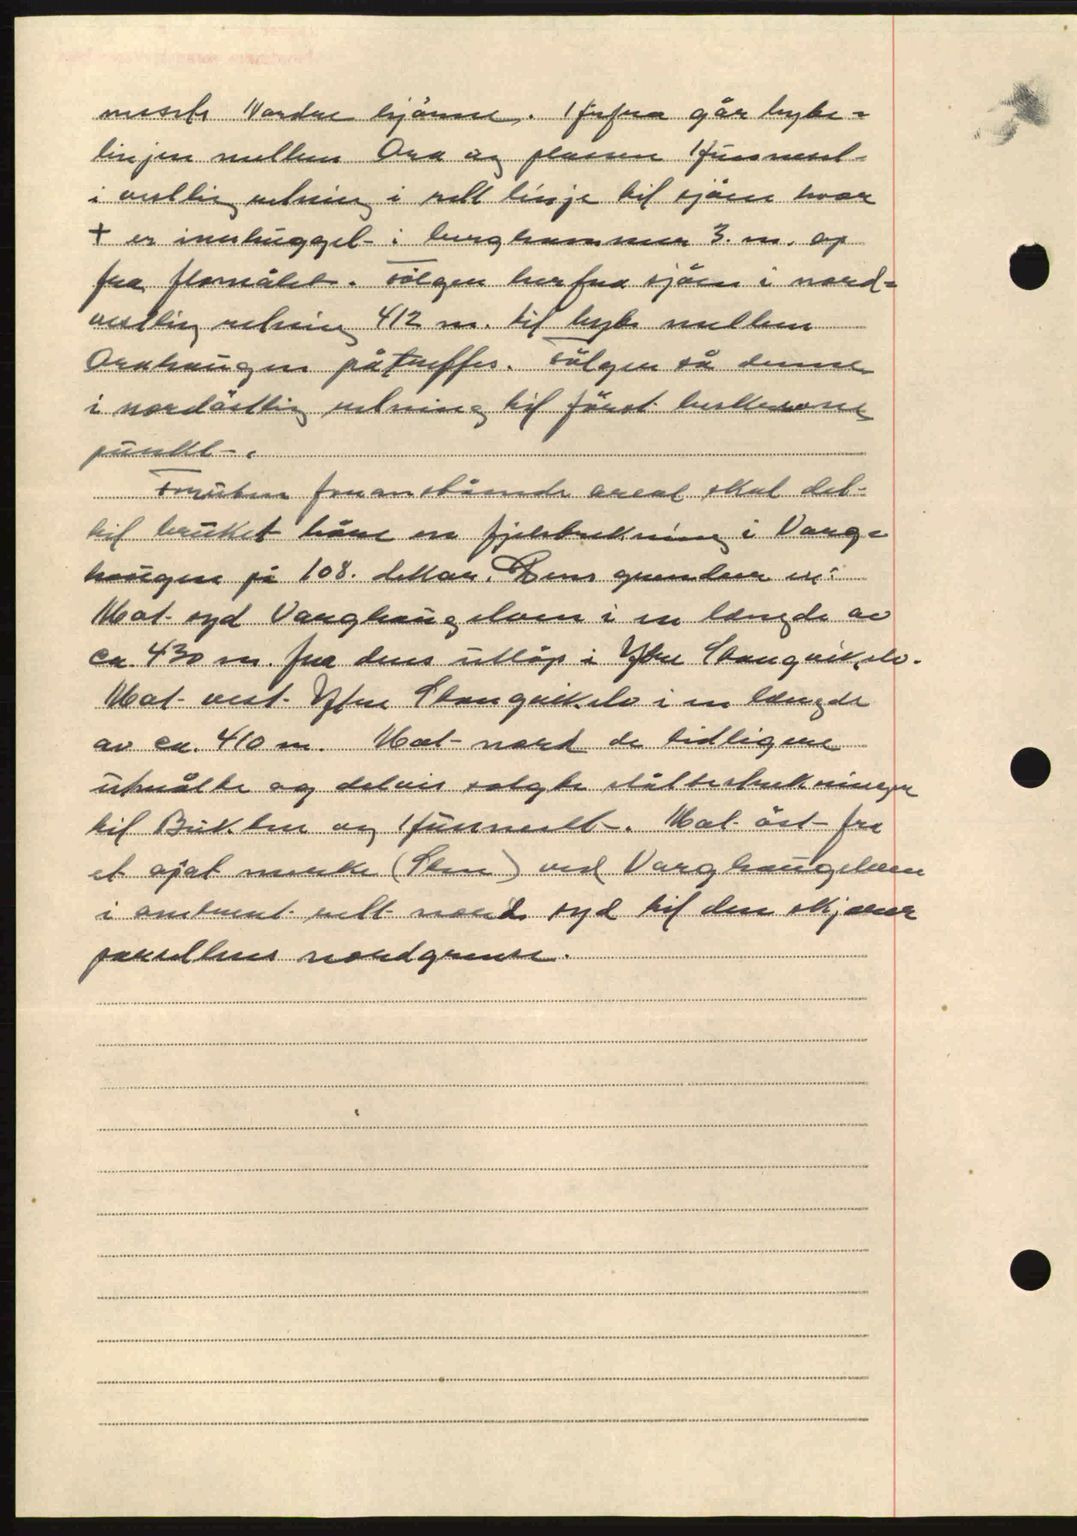 nesets Nordre hjørne. Herfra går byte-
linjen mellem Ora og plassen Husneset
i vestlig retning i rett linje til sjøen hvor
+ er innhugget i berghammer 3. m. op
fra flomålet. Følger herfra sjøen i nord-
vestlig retning 412 m. til byte mellem
Orahaugen påtreffes. Følger så denne
i nordöstlig retning til först beskrevne
punkt.
Foruten foranstående areal skal det
til bruket høre en fjelstrekning i Varg-
haugen på 108. dekar. Dens grenser er:
Mot syd Varghaugelven i en lengde av
ca. 430 m. fra dens utløp i Ytre Stangvikelv.
Mot vest Ytre Stangvikelv i en lengde
av ca. 410 m. Mot nord de tidligere
utmålte og delvis solgte slåttestrekninger
til Bukten og Husneset. Mot öst fra
et opsat merke (Sten) ved Varghaugelven
i omtrent rett nord syd til den
parsellens nordgrense.